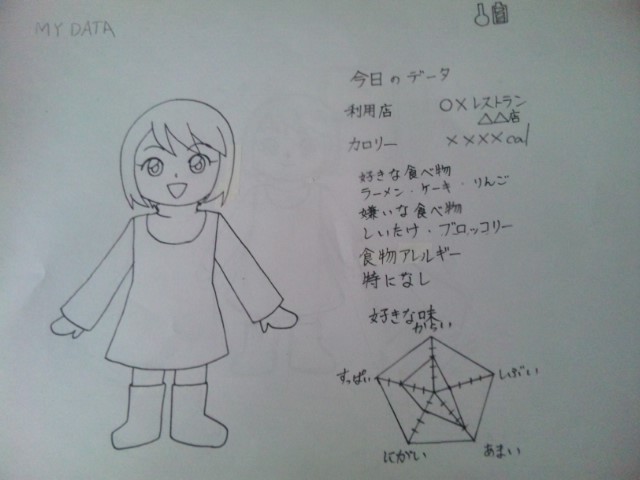 MY DATA
今日のデータ
利用店 ○×レストラン
△△店
カロリー ××××cal
好きな食べ物
ラーメン・ケーキ・りんご
嫌いな食べ物
しいたけ・ブロッコリー
食物アレルギー
特になし
好きな味
からい
すっぱい
しぶい
にがい
あまい